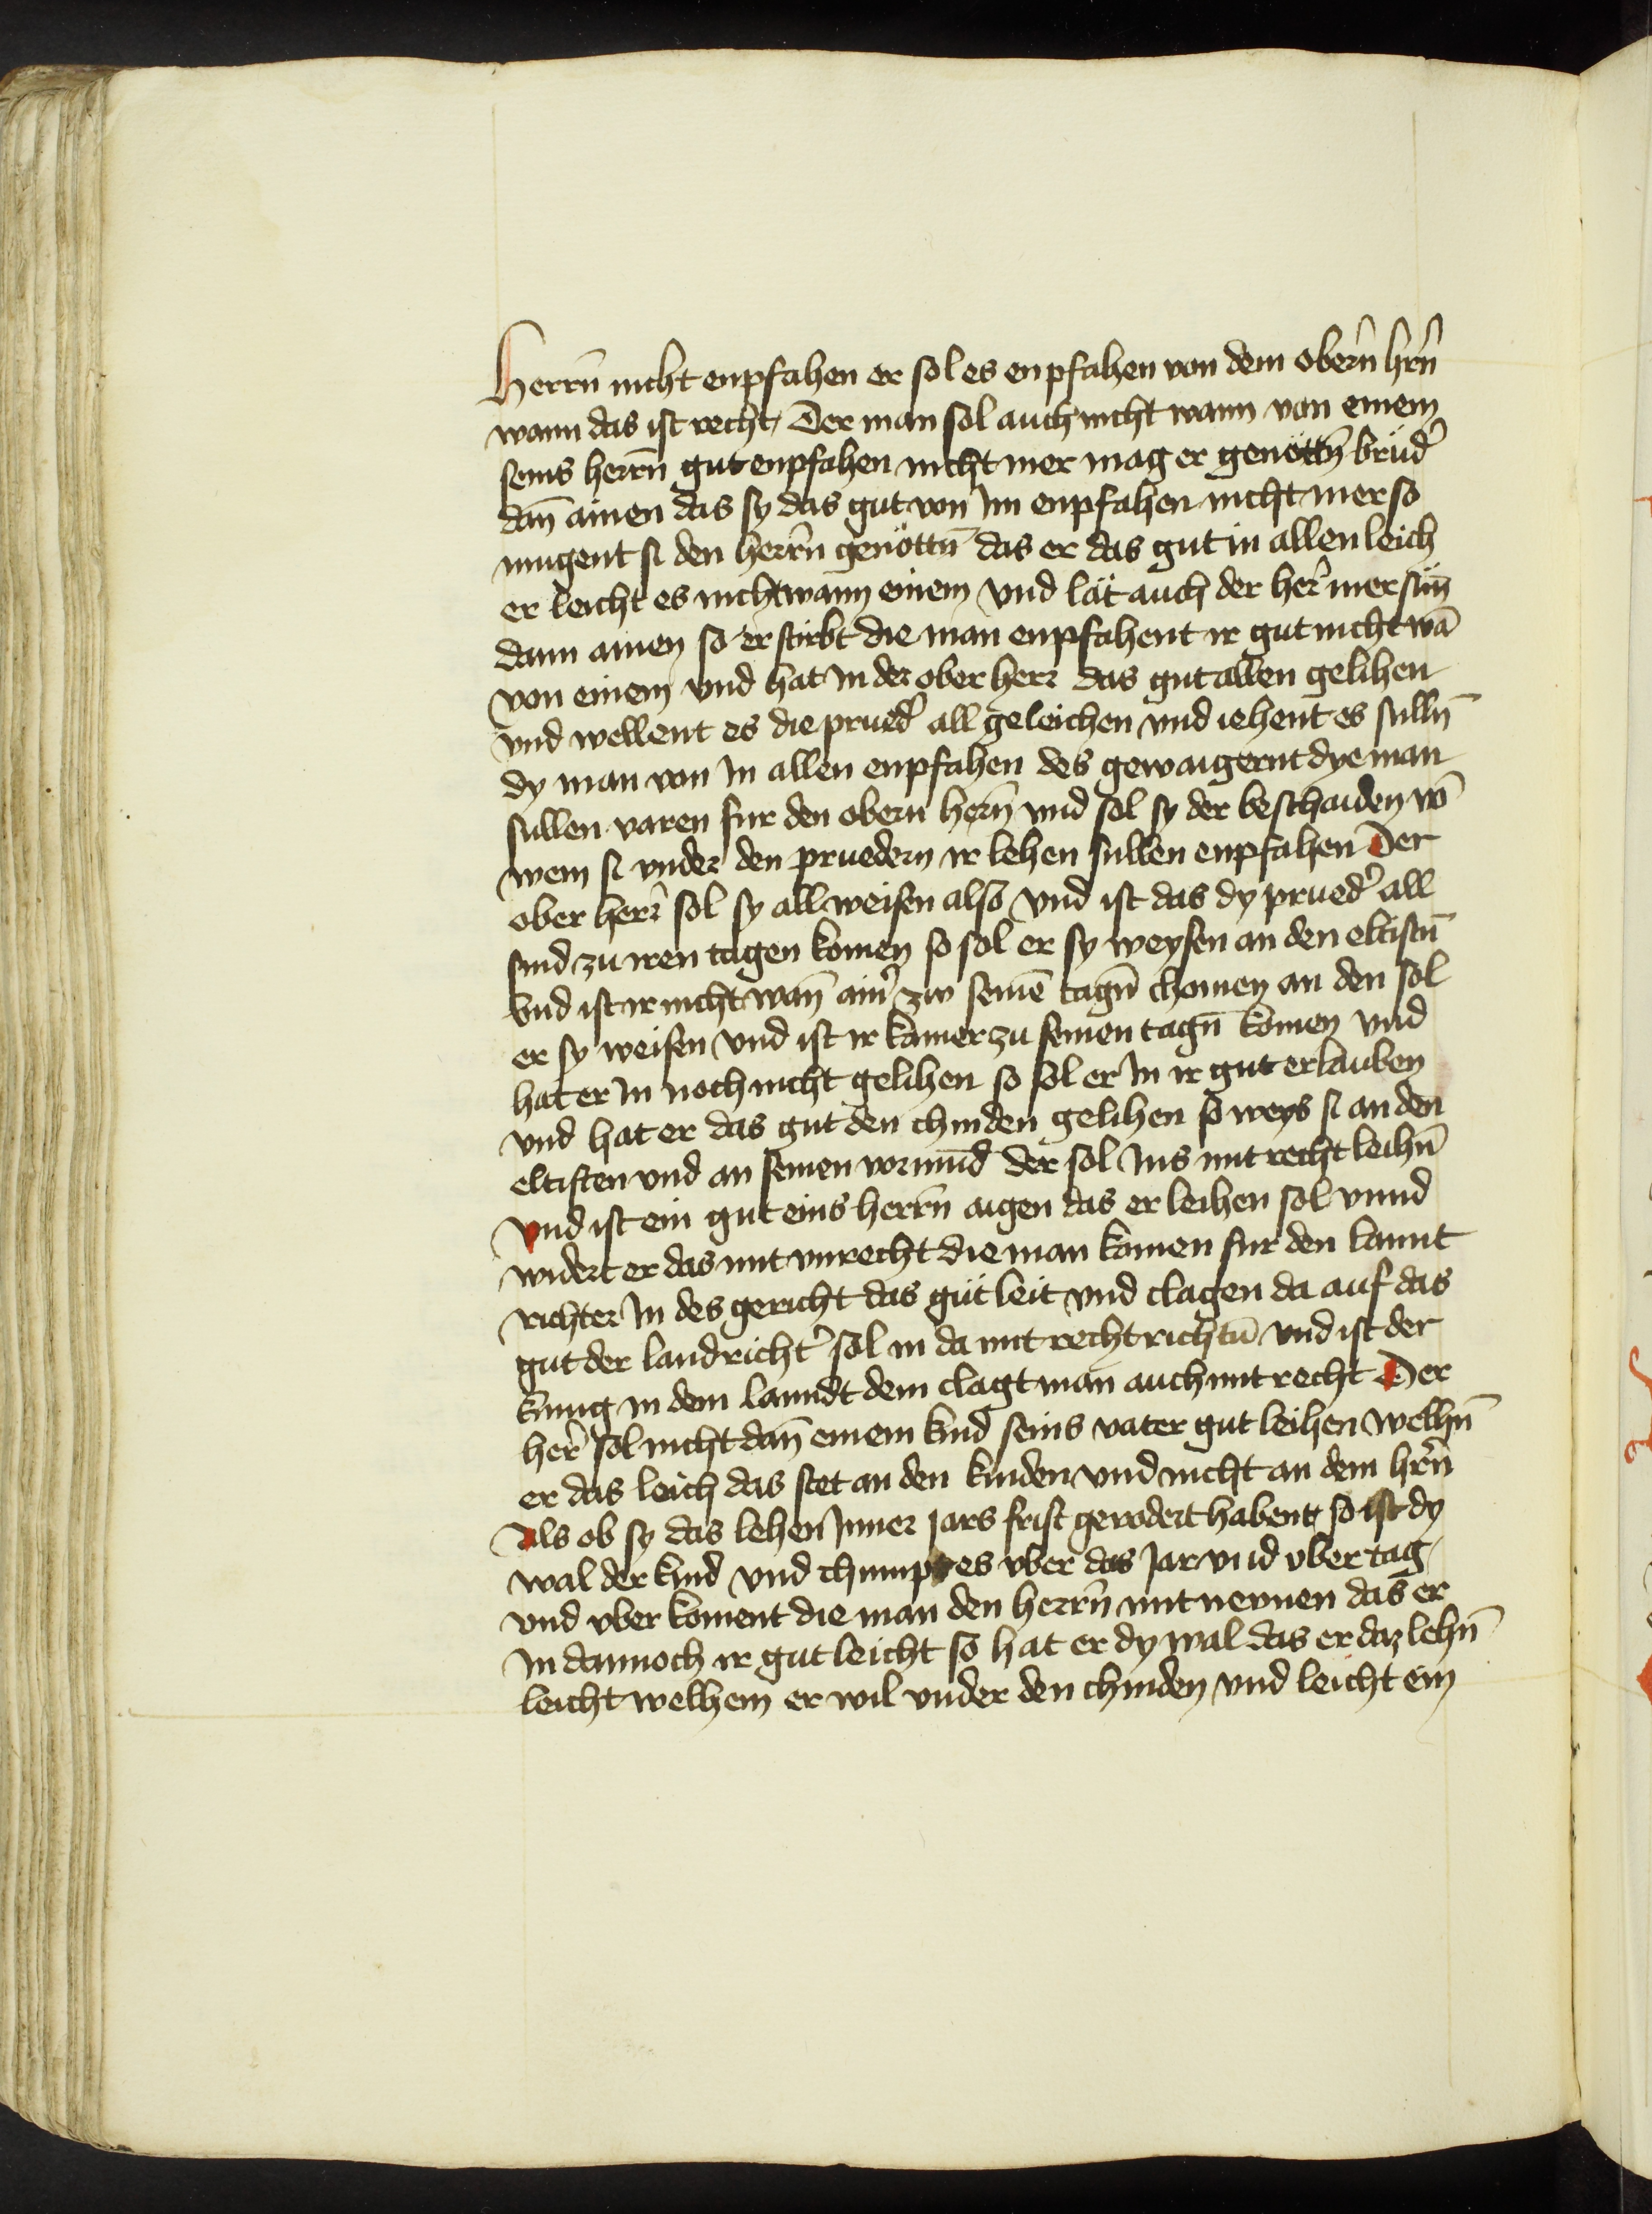 Herrn̄ nicht enpfahen er sol es enpfahen von dem obern̄ hr̄n
wann das ist recht Der man sol auch nicht wann von einem
seins herrn̄ gut enpfahen nicht mer mag er genöttn̄ brüd̾
dan̄ ainen das sy das gut von Im enpfahen nicht mer so
mugent si den herrn̄ genöttn̄ das er das gut in allen leich
er leicht es nicht wann einem Vnd lät auch der her̄ mer sün̄
dann ainen so er stirbt die man enpfahent ir gut nicht wā
von einem vnd hat In der ober herr das gut allen gelihen
vnd wellent es die prued̾ all geleichen vnd iehent es sulln̄
dy man von In allen enpfahen des gewaigernt dye man
sullen varen fur den obern hern̄ vnd sol sy der beschaiden vō
wem si vnder den pruedern ir lehen sullen enpfahen Der
ober herr̄ sol sy all weisen also Vnd ist das dy prued̾ all
sind zu iren tagen komen so sol er sy weysen an den eltistn̄
Vnd ist ir nicht wan̄ ain̾ zw seinē tagn̄ chomen an den sol
er sy weisen Vnd ist ir kainer zu seinen tagn̄ komen vnd
hat er In noch nicht gelihen so sol er In ir gut erlauben
vnd hat er das gut den chinden gelihen so weys si an den
eltisten vnd an seinen vormūd der sol Ins mit recht leihn̄
Vnd ist ein gut eins herrn̄ aigen das er leihen sol vnnd
widert er das mit vnrecht die man komen fur den lannt
richter In des gericht das güt leit vnd clagen da auf das
gut der landricht̾ sol in da mit recht richtn̄ Vnd ist der
kunig in dem lanndt dem clagt man auch mit recht Der
her̄ sol nicht dan̄ einem kind seins vater gut leihen Welhn̄
er das leich das stet an den kinden vnd nicht an dem hr̄n
Als ob sy das lehen Inner Jars frist gevodert habent so ist dy
wal der kind vnd chumpt es vber das Jar vnd vber tag
vnd vber koment die man den herrn̄ mit nernen das er
In dannoch ir gut leicht so hat er dy wal das er daz lehn̄
leicht welhem er wil vnder den chinden vnd leicht ein